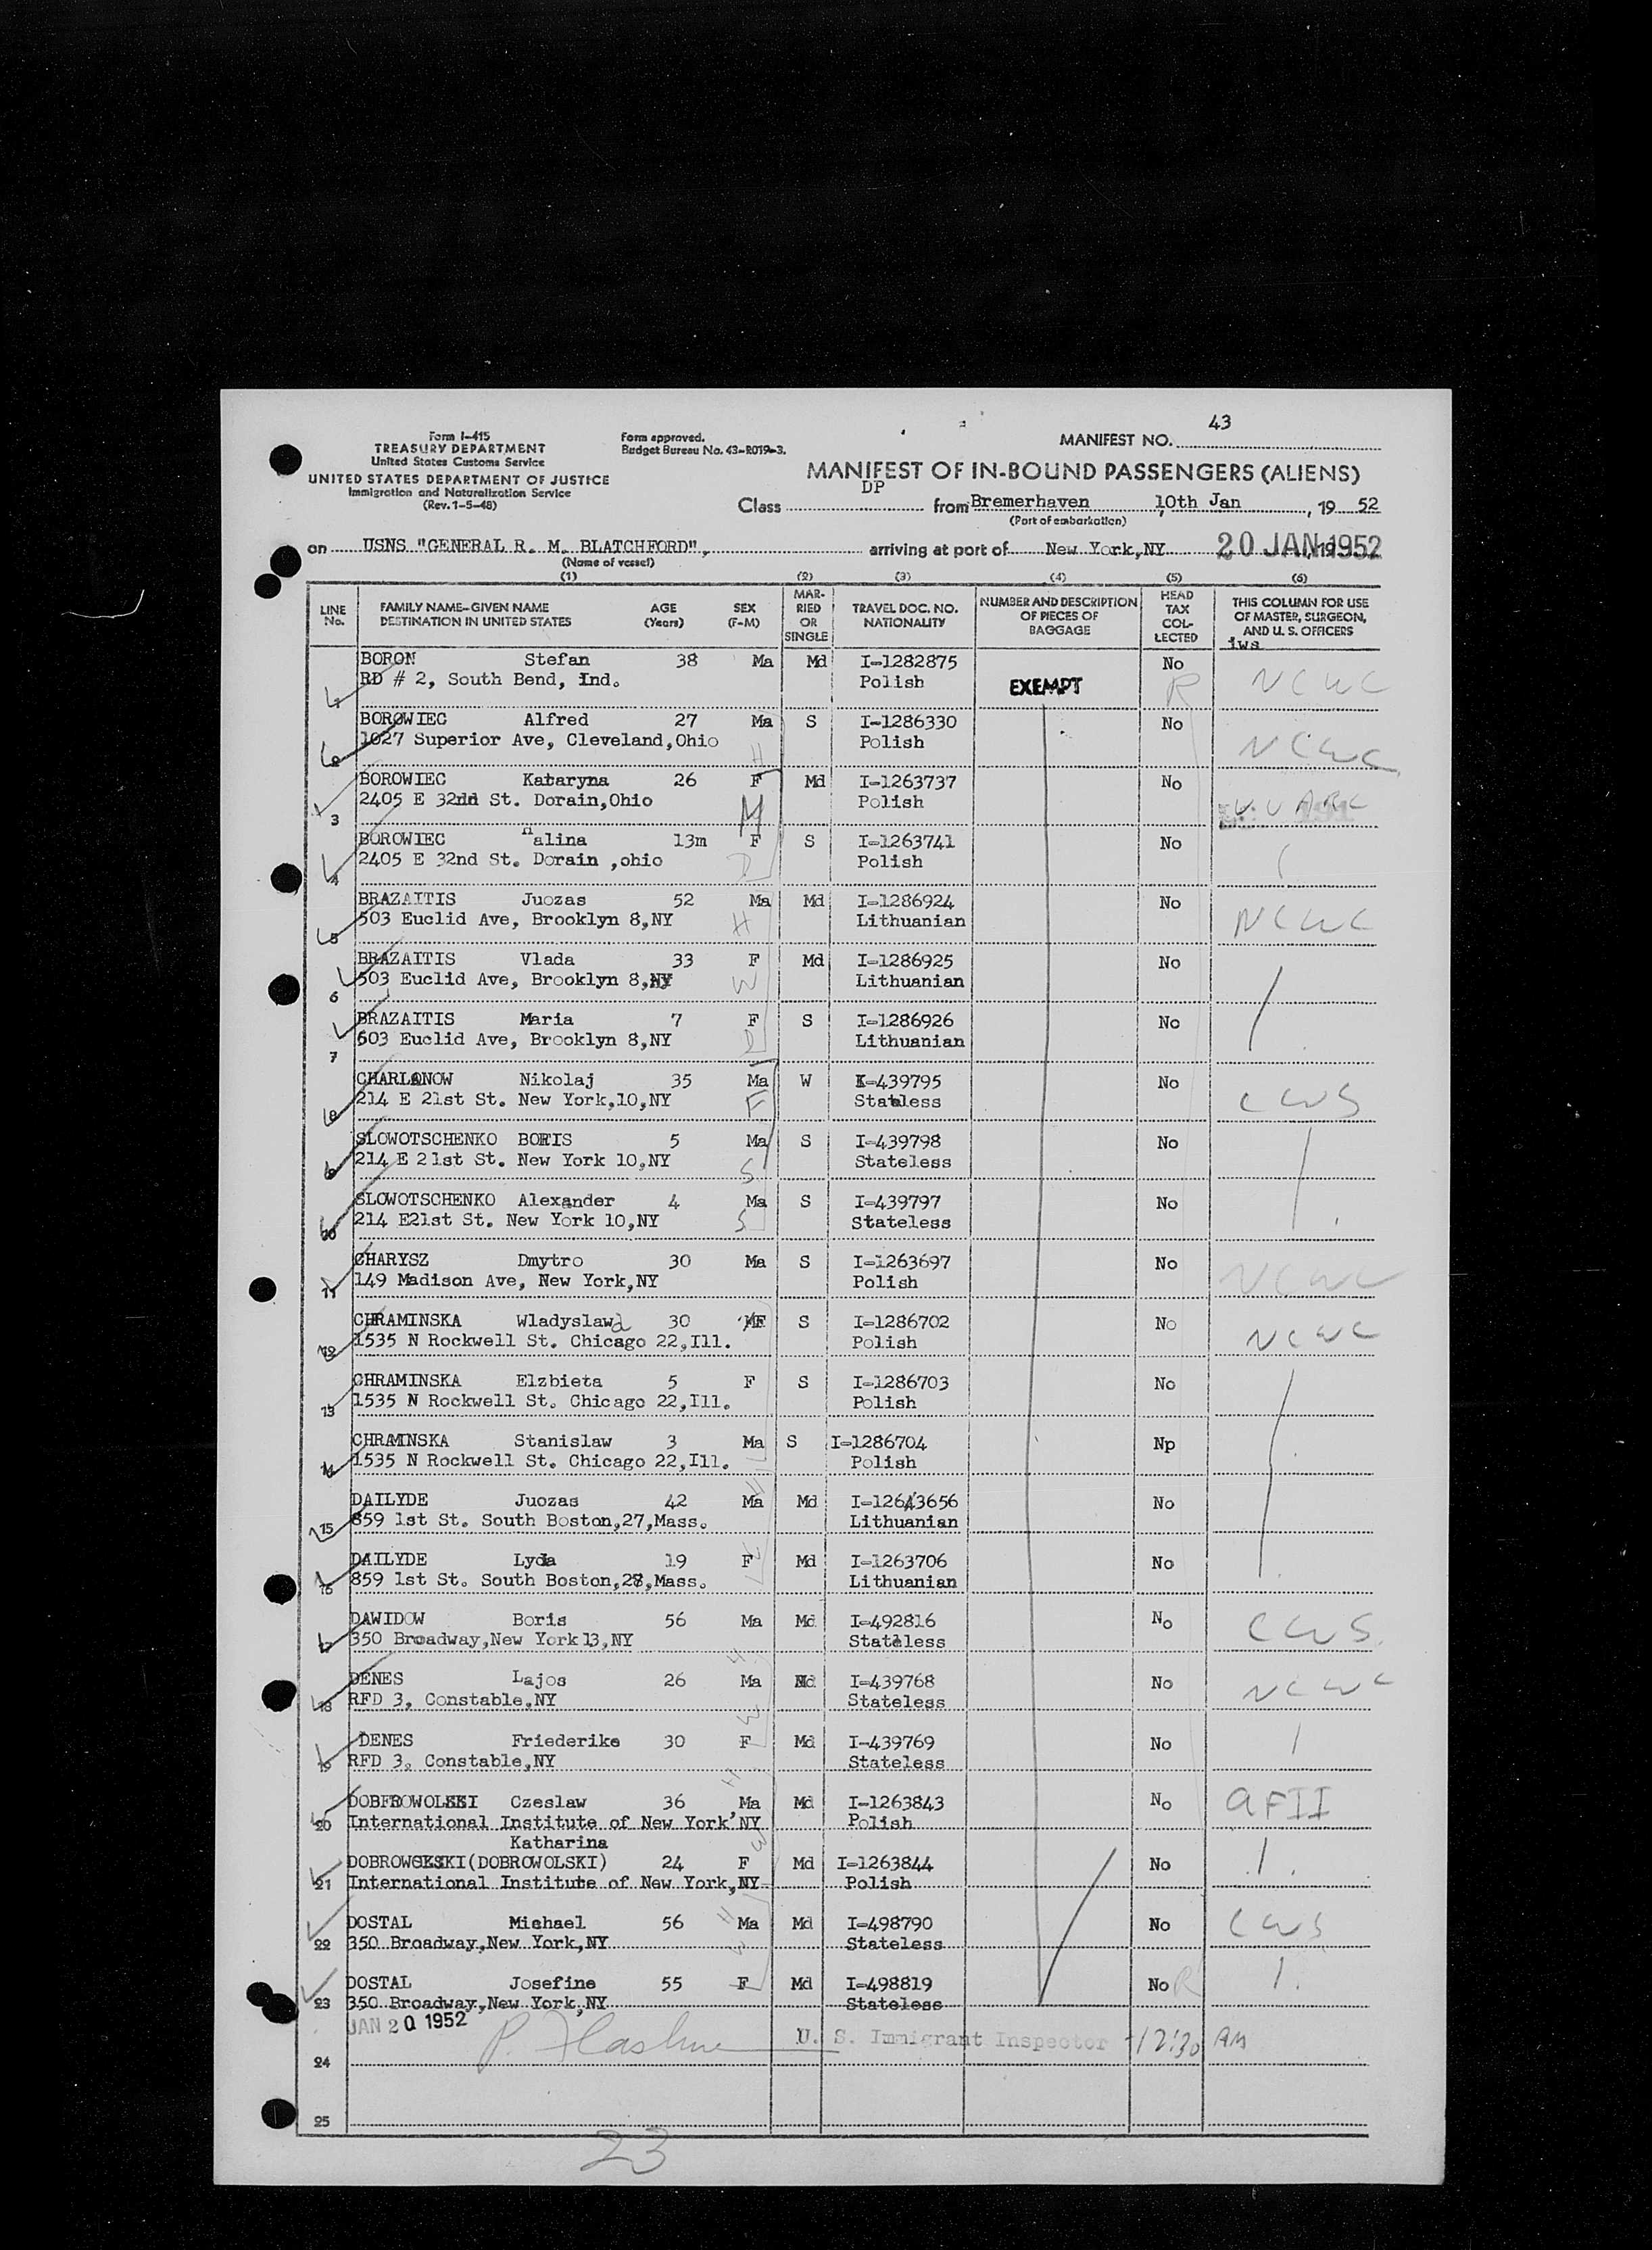 43
Form I-415
TREASURY DEPARTMENT
United States Customs Service
UNITED STATES DEPARTMENT OF JUSTICE
Immigration and Naturalization Service
(Rev. 1-5-48)
Form approved.
Budget Bureau No. 43-R019-3.
MANIFEST NO.
MANIFEST OF IN-BOUND PASSENGERS (ALIENS)
Class DP from Bremerhaven, 10th Jan, 19 52
(Port of embarkation)
on USNS "GENERAL R. M. BLATCHFORD", arriving at port of New York,NY 20 JAN 1952
(Name of vessel)
(1) (2) (3) (4) (5) (6)
LINE No. FAMILY NAME-GIVEN NAME DESTINATION IN UNITED STATES AGE (Years) SEX (F-M) MARRIED OR SINGLE TRAVEL DOC. NO. NATIONALITY NUMBER AND DESCRIPTION OF PIECES OF BAGGAGE HEAD TAX COLLECTED THIS COLUMN FOR USE OF MASTER, SURGEON, AND U. S. OFFICERS
iws
BORON Stefan 38 Ma Md I-1282875 No NCWC
RD # 2, South Bend, Ind. Polish EXEMPT R
BOROWIEC Alfred 27 Ma S I-1286330 No
2 1027 Superior Ave, Cleveland,Ohio H Polish NCWC
BOROWIEC Kataryna 26 F Md I-1263737 No
3 2405 E 32nd St. Dorain,Ohio M Polish
BOROWIEC Halina 13m F S I-1263741 No
4 2405 E 32nd St. Dorain ,ohio D Polish
BRAZAITIS Juozas 52 Ma Md I-1286924 No
5 503 Euclid Ave, Brooklyn 8,NY H Lithuanian NCWC
BRAZAITIS Vlada 33 F Md I-1286925 No
6 503 Euclid Ave, Brooklyn 8,NY W Lithuanian
BRAZAITIS Maria 7 F S I-1286926 No
7 603 Euclid Ave, Brooklyn 8,NY D Lithuanian
CHARLANOW Nikolaj 35 Ma W I-439795 No
8 214 E 21st St. New York,10,NY F Stateless CWS
SLOWOTSCHENKO BORIS 5 Ma S I-439798 No
9 214 E 21st St. New York 10,NY S Stateless
SLOWOTSCHENKO Alexander 4 Ma S I-439797 No
10 214 E21st St. New York 10,NY S Stateless
CHARYSZ Dmytro 30 Ma S I-1263697 No
11 149 Madison Ave, New York,NY Polish NCWC
CHRAMINSKA Wladyslawa 30 F S I-1286702 No
12 1535 N Rockwell St. Chicago 22,Ill. Polish NCWC
CHRAMINSKA Elzbieta 5 F S I-1286703 No
13 1535 N Rockwell St. Chicago 22,Ill. Polish
CHRAMINSKA Stanislaw 3 Ma S I-1286704 Np
14 1535 N Rockwell St. Chicago 22,Ill. Polish
DAILYDE Juozas 42 Ma Md I-12643656 No
15 859 1st St. South Boston,27,Mass. Lithuanian
DAILYDE Lyda 19 F Md I-1263706 No
16 859 1st St. South Boston,27,Mass. Lithuanian
DAWIDOW Boris 56 Ma Md I-492816 No
17 350 Broadway,New York 13,NY Stateless CWS
DENES Lajos 26 Ma Md I-439768 No
18 RFD 3, Constable,NY Stateless NCWC
DENES Friederike 30 F Md I-439769 No
19 RFD 3, Constable,NY Stateless
DOBROWOLSKI Czeslaw 36 Ma Md I-1263843 No AFII
20 International Institute of New York,NY Polish
Katharina
DOBROWOLSKI(DOBROWOLSKI) 24 F Md I-1263844 No
21 International Institute of New York,NY Polish
DOSTAL Michael 56 Ma Md I-498790 No CWS
22 350 Broadway,New York,NY Stateless
DOSTAL Josefine 55 F Md I-498819 No R
23 350 Broadway,New York,NY Stateless
JAN 20 1952
U. S. Immigrant Inspector 12:30 AM
24
25
23